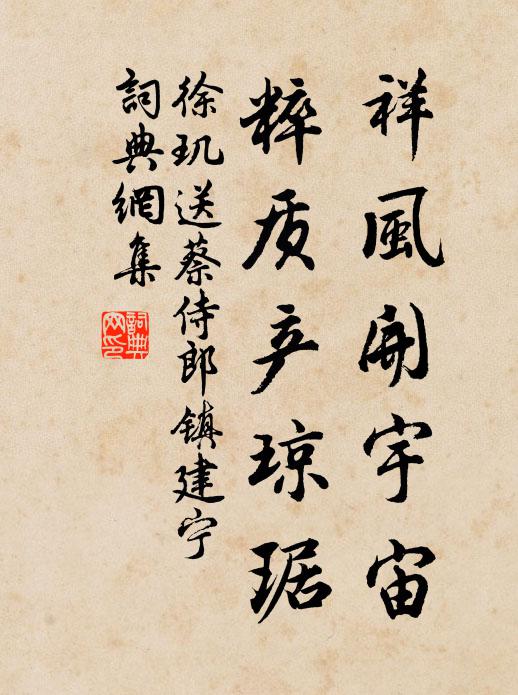 祥風開宇宙
粹质产琼琚
徐玑送蔡侍郎镇建宁
詞典網集
詞典網印